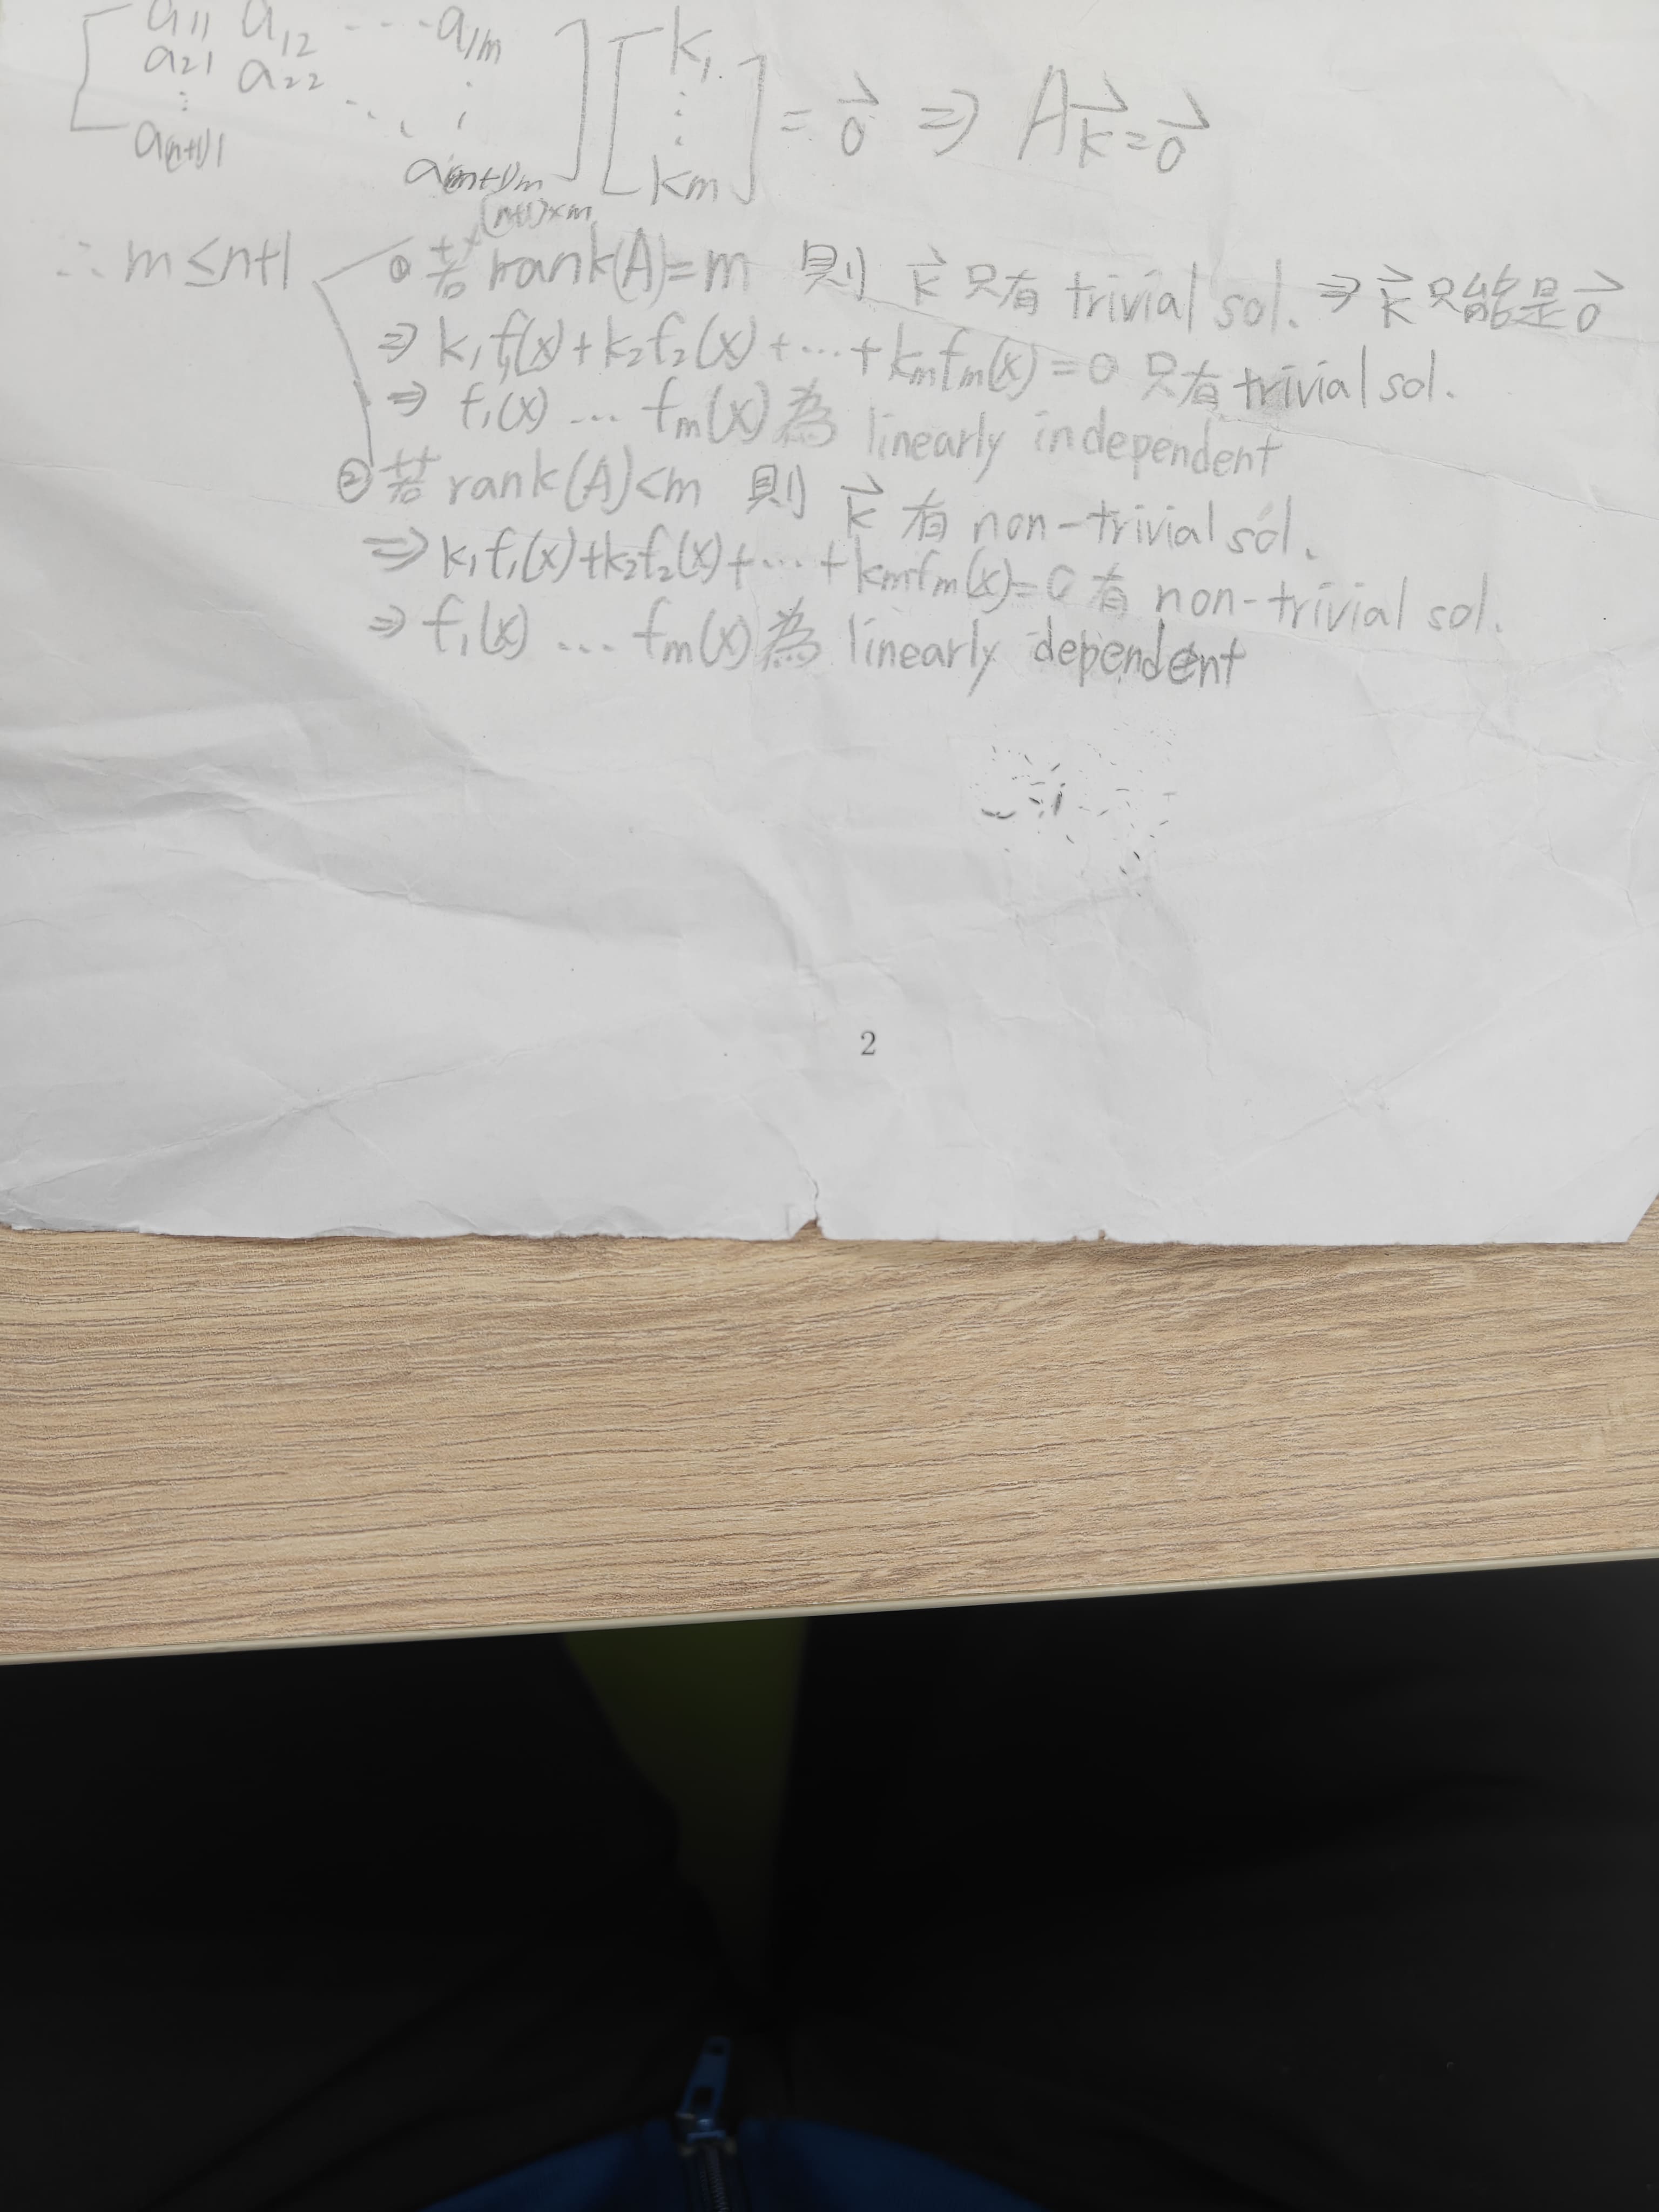 [a11 a12 ... a1m
a21 a22 ⋮
⋮ ⋱ ⋮
a(n+1)1 a(n+1)m](n+1)×m [k1 ⋮ km] = 0⃗ ⇒ Ak⃗=0⃗
∴ m≤n+1 ① 若 rank(A)=m 則 k⃗ 只有 trivial sol. ⇒ k⃗ 只能是 0⃗
⇒ k1f1(x)+k2f2(x)+...+kmfm(x)=0 只有 trivial sol.
⇒ f1(x) ... fm(x) 為 linearly independent
② 若 rank(A)<m 則 k⃗ 有 non-trivial sol.
⇒ k1f1(x)+k2f2(x)+...+kmfm(x)=0 有 non-trivial sol.
⇒ f1(x) ... fm(x) 為 linearly dependent
2